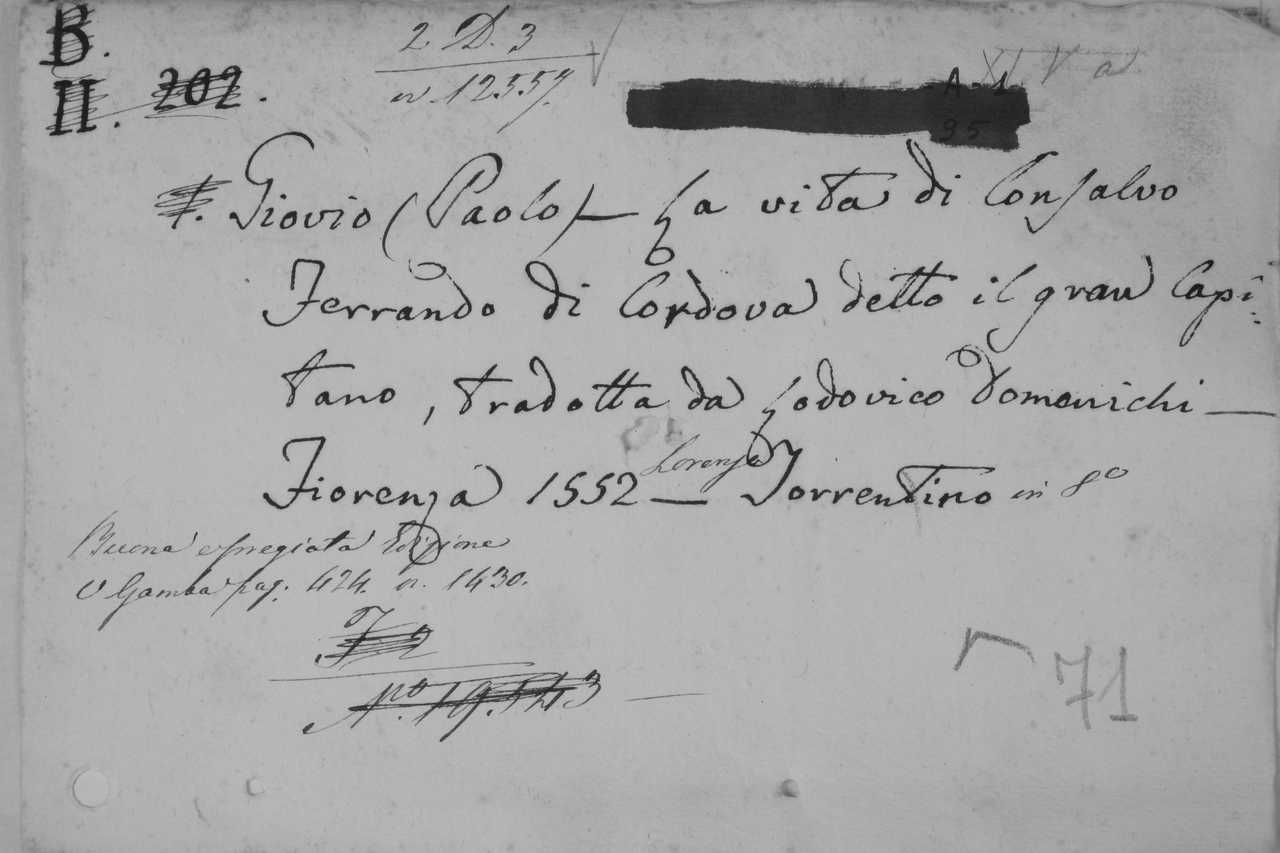 B.
II. 202.
2 D. 3
n. 12557.
XI V a
A-1
95
Giovio (Paolo) — La vita di Consalvo
Ferrando di Cordova detto il gran Capi-
tano, tradotta da Lodovico Domenichi —
Fiorenza 1552 — Lorenzo Torrentino in 8o
Buona e pregiata Edizione
V Gamba pag. 424. n. 1430.
F 2
No. 19.543
71